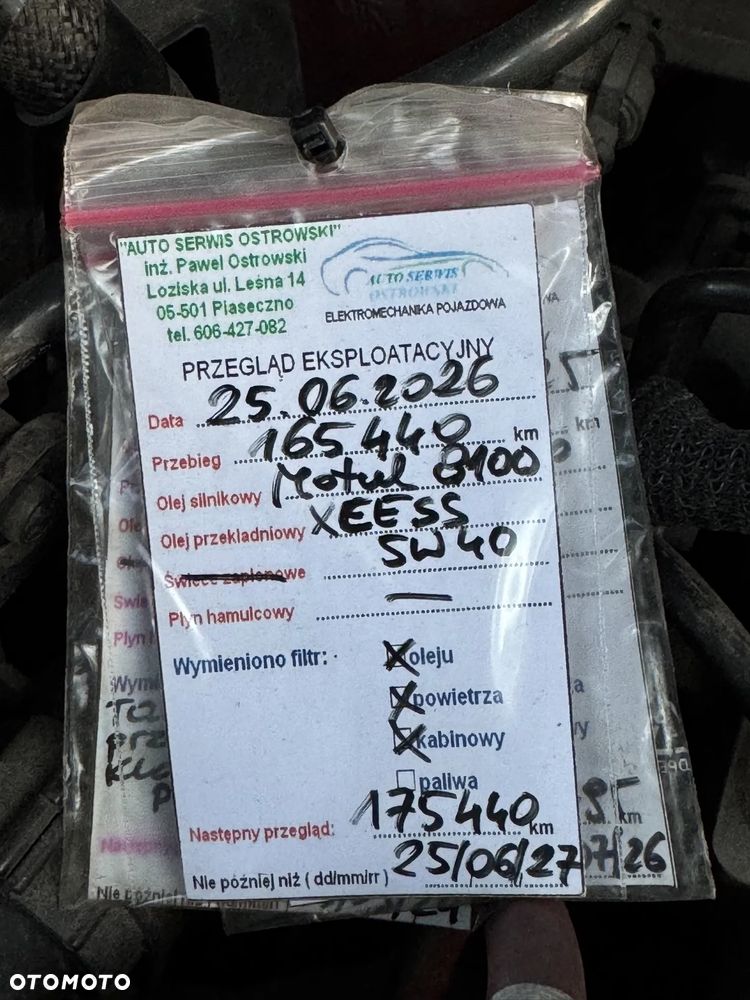 "AUTO SERWIS OSTROWSKI"
inż. Paweł Ostrowski
Loziska ul. Leśna 14
05-501 Piaseczno
tel. 606-427-082
AUTO SERWIS
OSTROWSKI
ELEKTROMECHANIKA POJAZDOWA
PRZEGLĄD EKSPLOATACYJNY
Data 25.06.2026
Przebieg 165440 km
Olej silnikowy Motul 8100
Olej przekladniowy XEESS
Świece zapłonowe 5W40
Płyn hamulcowy —
Wymieniono filtr:
X oleju
X powietrza
X kabinowy
paliwa
Następny przegląd: 175440 km
Nie później niż ( dd/mm/rr ) 25/06/27
km
km
07/26
OTOMOTO